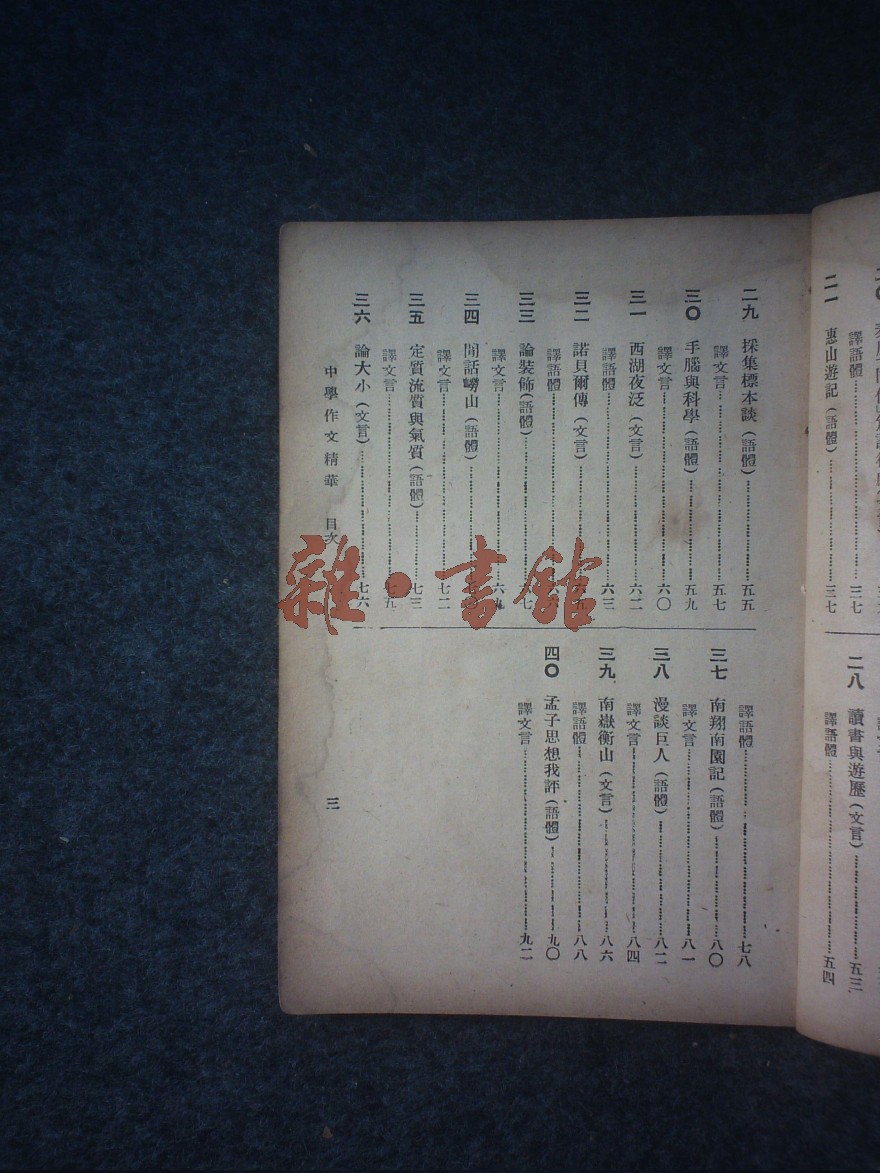 二一 惠山遊記（語體）……三七
二八 讀書與遊歷（文言）……五三
譯語體……五四
二九 採集標本談（語體）……五五
譯文言……五七
三〇 手腦與科學（語體）……五九
譯文言……六〇
三一 西湖夜泛（文言）……六二
譯語體……六三
三二 諾貝爾傳（文言）
譯語體
三三 論裝飾（語體）
譯文言
三四 閒話嶗山（語體）
譯文言……七二
三五 定質流質與氣質（語體）……七三
譯文言
三六 論大小（文言）……七六
譯語體……七八
三七 南翔南園記（語體）……八〇
譯文言……八一
三八 漫談巨人（語體）……八二
譯文言……八四
三九 南嶽衡山（文言）……八六
譯語體……八八
四〇 孟子思想我評（語體）……九〇
譯文言……九二
中學作文精華 目次
三
雜·書館